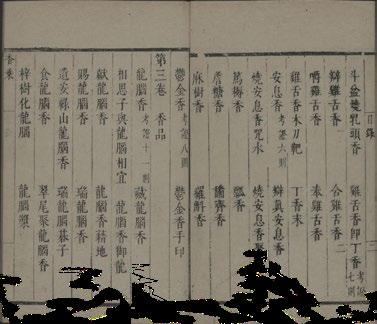 目錄
斗盆燒乳頭香 雞舌香即丁香 考證七則
辯雞舌香 合雞舌香
嚼雞舌香 奉雞舌香
雞舌香木刀靶 丁香末
安息香 考證六則 辯真安息香
燒安息香咒水 燒安息香聚
篤耨香 瓢香
詹糖香 齊香
麻樹香 羅斛香
鬱金香 考證八則 鬱金香手印
第三卷 香品
龍腦香 考證十一則 藏龍腦香
相思子與龍腦相宜 龍腦香御龍
獻龍腦香 龍腦香藉地
賜龍腦香 瑞龍腦香
遺安祿山龍腦香 瑞龍腦棊子
食龍腦香 翠尾聚龍腦香
梓樹化龍腦 龍腦漿
香乘